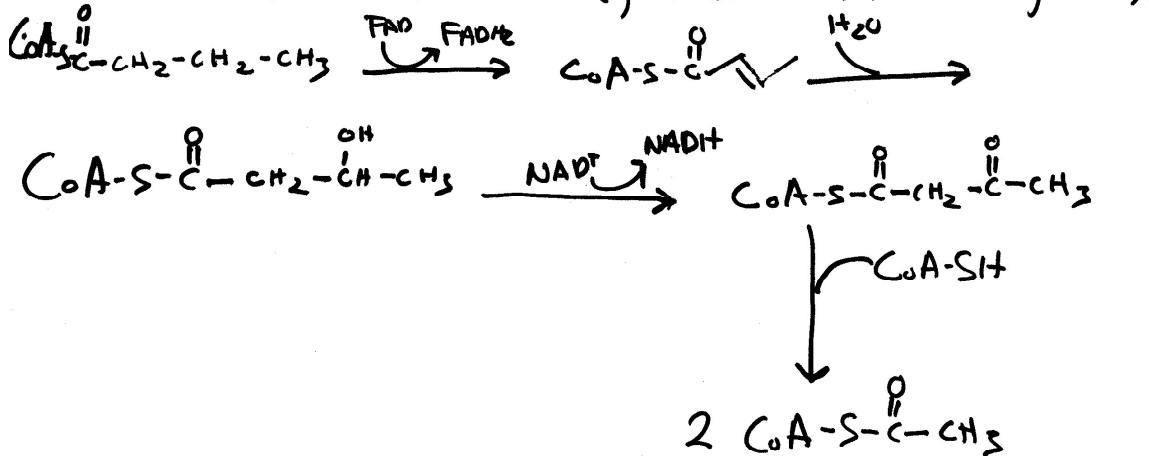 O O
CoA-S-C-CH2-CH2-CH3 FAD FADH2 CoA-S-C H2O
O OH O O
CoA-S-C-CH2-CH-CH3 NAD+ NADH CoA-S-C-CH2-C-CH3
CoA-SH
O
2 CoA-S-C-CH3